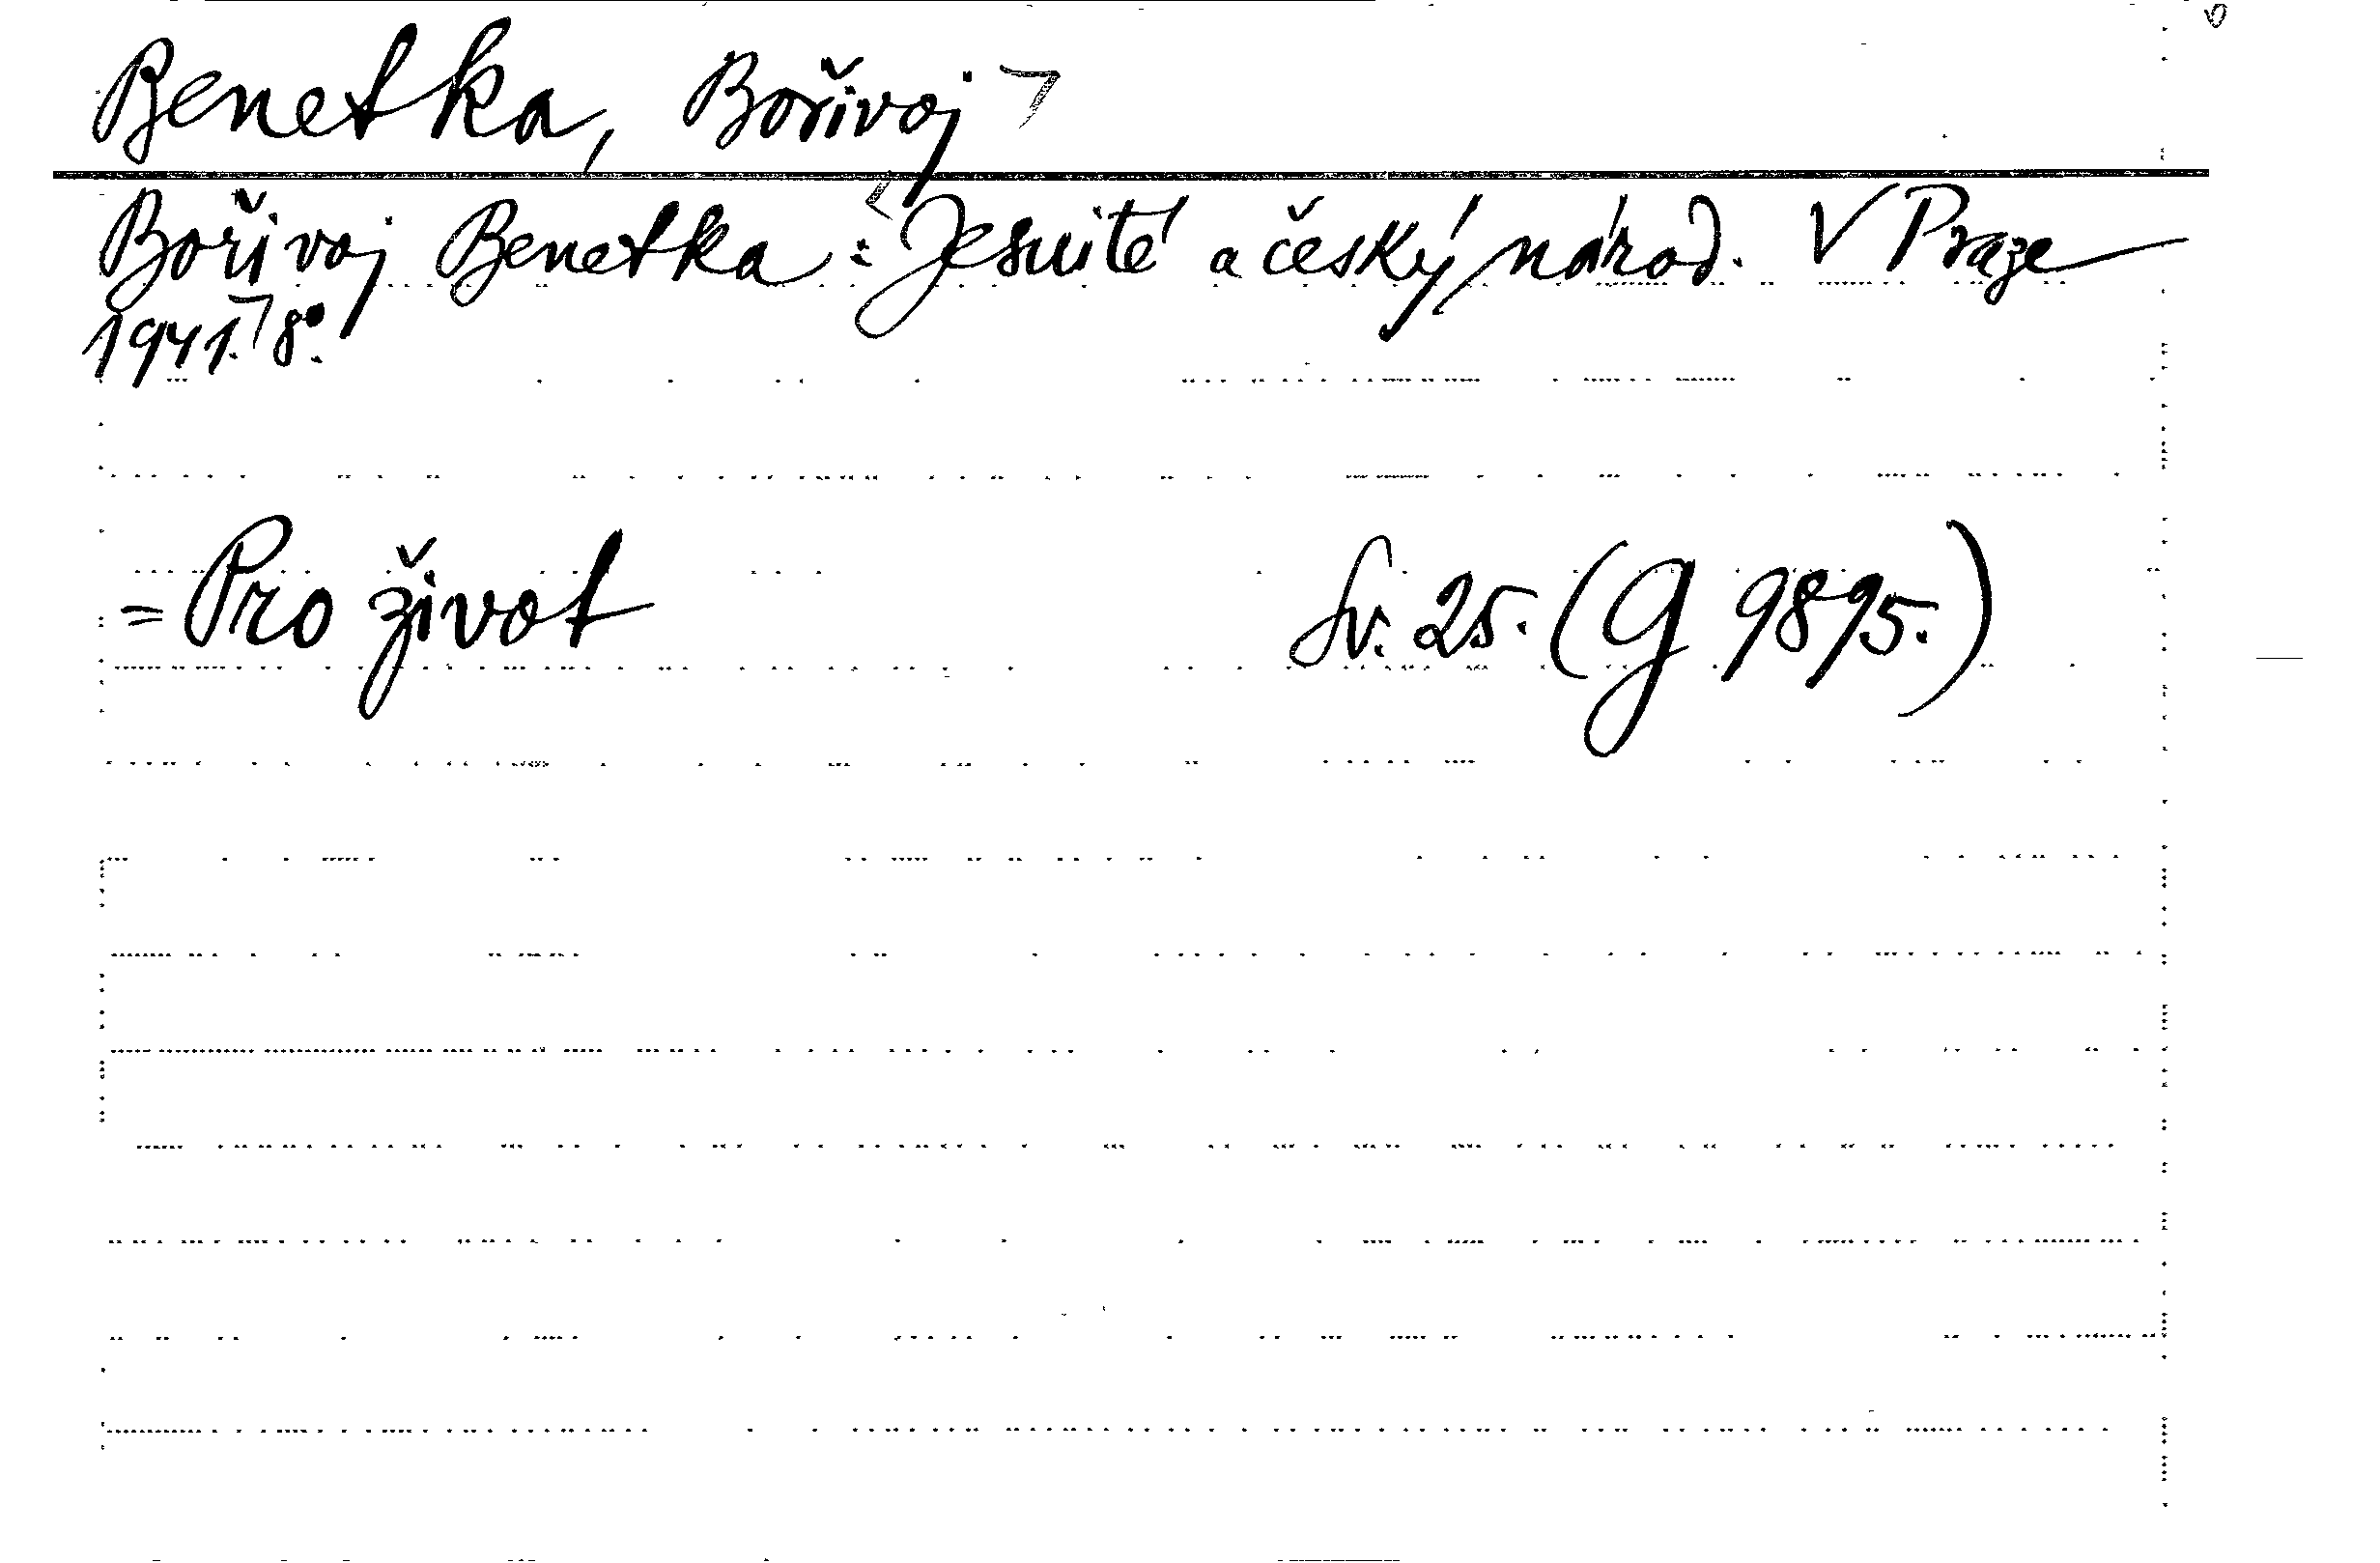 Benetka, Bořivoj
Bořivoj Benetka: Jesuité a český národ. V Praze
1941. 8°.
= Pro život Sv. 25. (G 9895.)